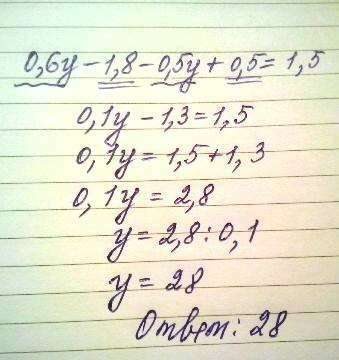 0,6y - 1,8 - 0,5y + 0,5 = 1,5
0,1y - 1,3 = 1,5
0,1y = 1,5 + 1,3
0,1y = 2,8
y = 2,8 : 0,1
y = 28
Ответ: 28